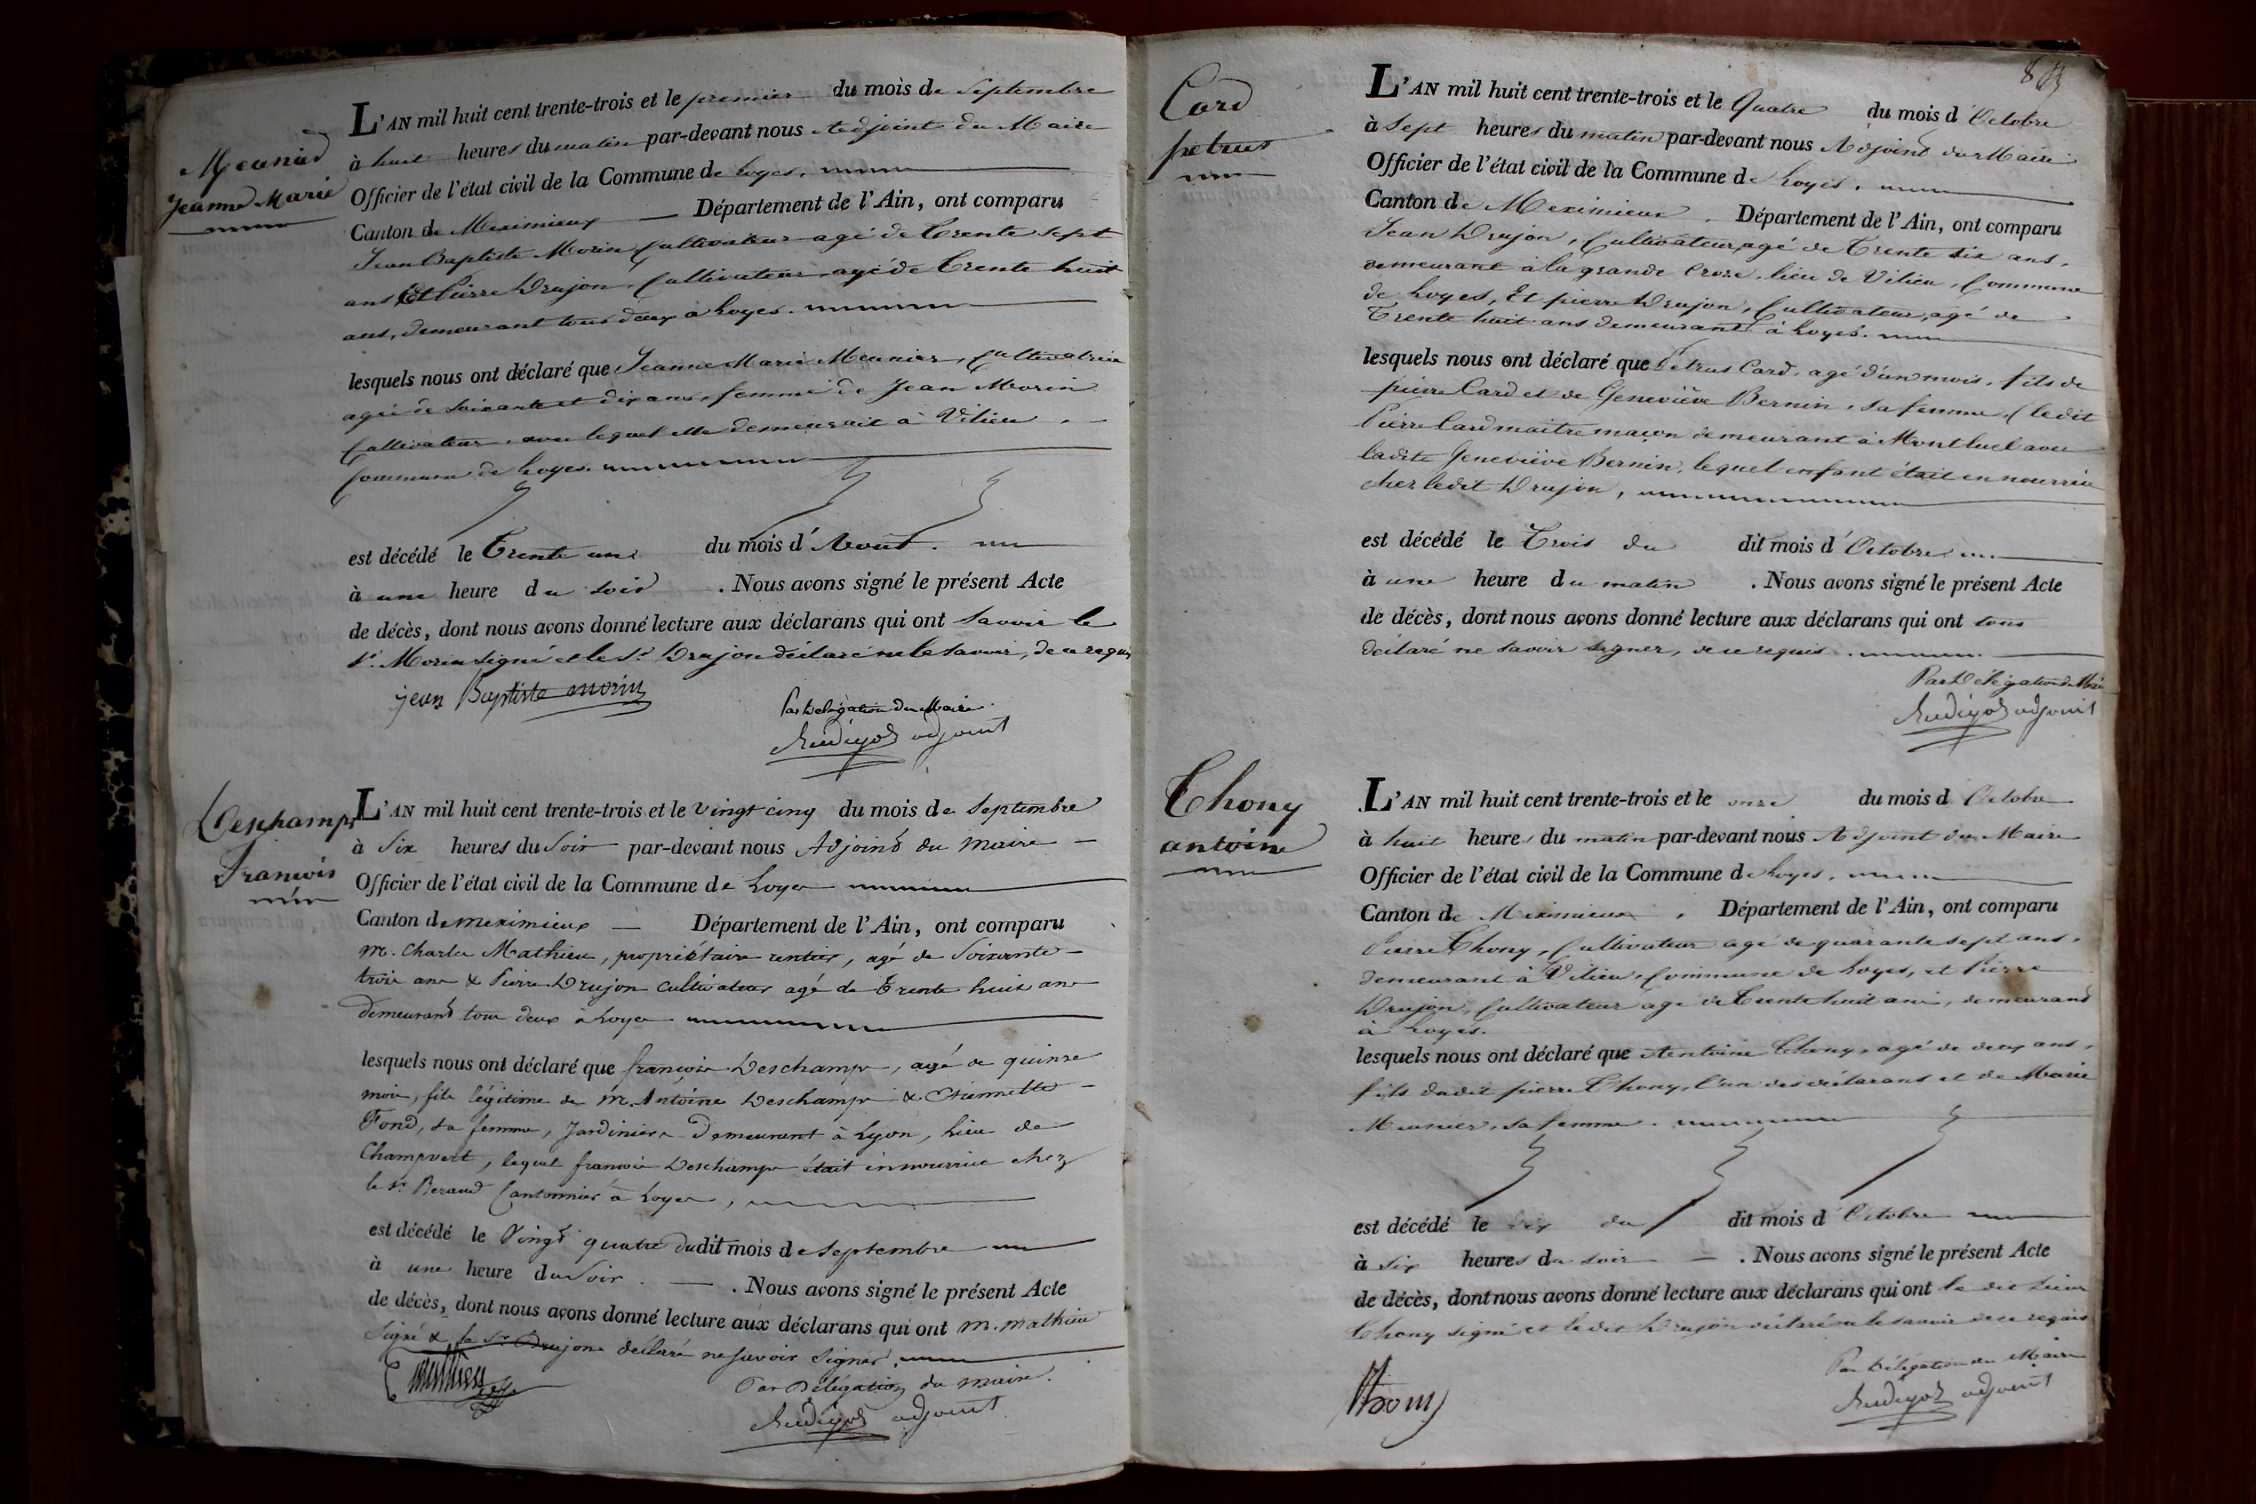 Meunier
Jeanne Marie
L'AN mil huit cent trente-trois et le premier du mois de Septembre
à huit heures du matin par-devant nous Adjoint du Maire
Officier de l'état civil de la Commune de Loyes.
Canton de Meximieux Département de l'Ain, ont comparu
Jean Baptiste Morin Cultivateur agé de Trente sept
ans Et Pierre Drujon, Cultivateur agé de Trente huit
ans, demeurant tous deux à Loyes.
lesquels nous ont déclaré que Jeanne Marie Meunier, Cultivatrice
agée de soixante et dix ans, femme de Jean Morin
Cultivateur, avec lequel elle demeurait à Vilieu,
Commune de Loyes.
est décédé le Trente un du mois d'Aout.
à une heure du soir . Nous avons signé le présent Acte
de décès, dont nous avons donné lecture aux déclarans qui ont savoir le
Sr. Morin signé et le Sr. Drujon déclaré ne le savoir, de ce requis
jean Baptiste morin
Par Délégation du Maire.
adjoint
Deschamps
François
L'AN mil huit cent trente-trois et le vingt cinq du mois de Septembre
à Six heures du Soir par-devant nous Adjoint du Maire
Officier de l'état civil de la Commune de Loyes
Canton de meximieux Département de l'Ain, ont comparu
M. Charles Mathieu, propriétaire rentier, agé de Soixante-
trois ans & Pierre Drujon cultivateur agé de Trente huit ans
Demeurant tous deux à Loyes
lesquels nous ont déclaré que françois Deschamps, agé de quinze
mois, fils légitime de M. Antoine Deschamps & Etiennette
Fond, sa femme, Jardiniers Demeurant à Lyon, lieu de
Champvert, lequel francois Deschamps était en nourrice chez
le Sr. Beraud Cantonnier à Loyes,
est décédé le Vingt quatre du dit mois de Septembre
à une heure du Soir . Nous avons signé le présent Acte
de décès, dont nous avons donné lecture aux déclarans qui ont M. Mathieu
Signé & le Sr. Drujon déclaré ne savoir Signer.
Mathieu
Par Délégation du maire.
adjoint
Card
petrus
L'AN mil huit cent trente-trois et le Quatre du mois d'Octobre
à Sept heures du matin par-devant nous Adjoint du Maire
Officier de l'état civil de la Commune de Loyes.
Canton de Meximieux. Département de l'Ain, ont comparu
Jean Drujon, Cultivateur, agé de Trente six ans,
demeurant à la grande Croze, lieu de Vilieu, Commune
de Loyes, Et pierre Drujon, Cultivateur, agé de
Trente huit ans demeurant à Loyes.
lesquels nous ont déclaré que Petrus Card, agé d'un mois, fils de
pierre Card et de Geneviève Bernin, sa femme, (ledit
Pierre Card maitre maçon demeurant à Montluel avec
ladite Geneviève Bernin, lequel enfant était en nourrice
chez ledit Drujon,
est décédé le Trois du dit mois d'Octobre
à une heure du matin . Nous avons signé le présent Acte
de décès, dont nous avons donné lecture aux déclarans qui ont tous
déclaré ne savoir signer, de ce requis.
Par Délégation du Maire
adjoint
Thony
antoine
L'AN mil huit cent trente-trois et le onze du mois d Octobre
à huit heures du matin par-devant nous Adjoint du Maire
Officier de l'état civil de la Commune de Loyes.
Canton de Meximieux. Département de l'Ain, ont comparu
Pierre Thony, Cultivateur agé de quarante sept ans,
demeurant à Vilieu, Commune de Loyes, et Pierre
Drujon, Cultivateur agé de Trente huit ans, demeurant
à Loyes.
lesquels nous ont déclaré que Antoine Thony, agé de deux ans,
fils dudit pierre Thony, l'un des déclarans et de Marie
Meunier, sa femme.
est décédé le dix du dit mois d'Octobre
à six heures du soir . Nous avons signé le présent Acte
de décès, dont nous avons donné lecture aux déclarans qui ont le dit Pierre
Thony signé et ledit Drujon déclaré ne le savoir de ce requis
Par Délégation du Maire
Thony
adjoint